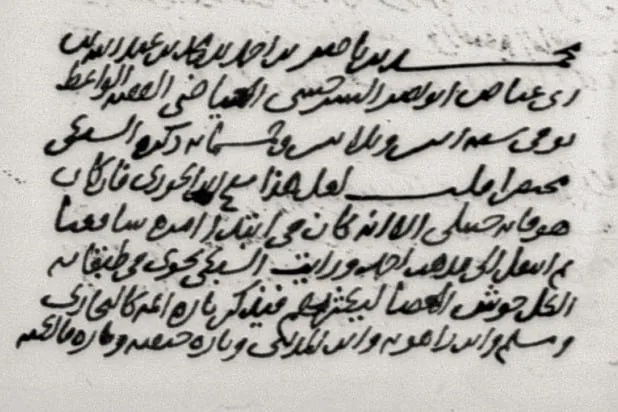 محمد بن ناصر بن احمد بن محمد بن عبد الله بن
ابى عياض ابو نصر السرخسى العياضى الفقيه الواعظ
توفى سنه اثنين وثلاثين وخمسمائه ذكره السبكى
مختصرا قلت لعل هذا شيخ ابن الجوزى فان كان
هو فانه حنبلى الا انه كان فى ابتدا امره شافعيا
ثم انتقل الى مذهب احمد ورايت السبكى يحوى فى طبقاته
الكل حوش العصا ليكثرهم فيذكر تاره ائمه كالبخارى
ومسلم وابن راهويه وابن المدينى وتاره حنفيه وتاره مالكيه